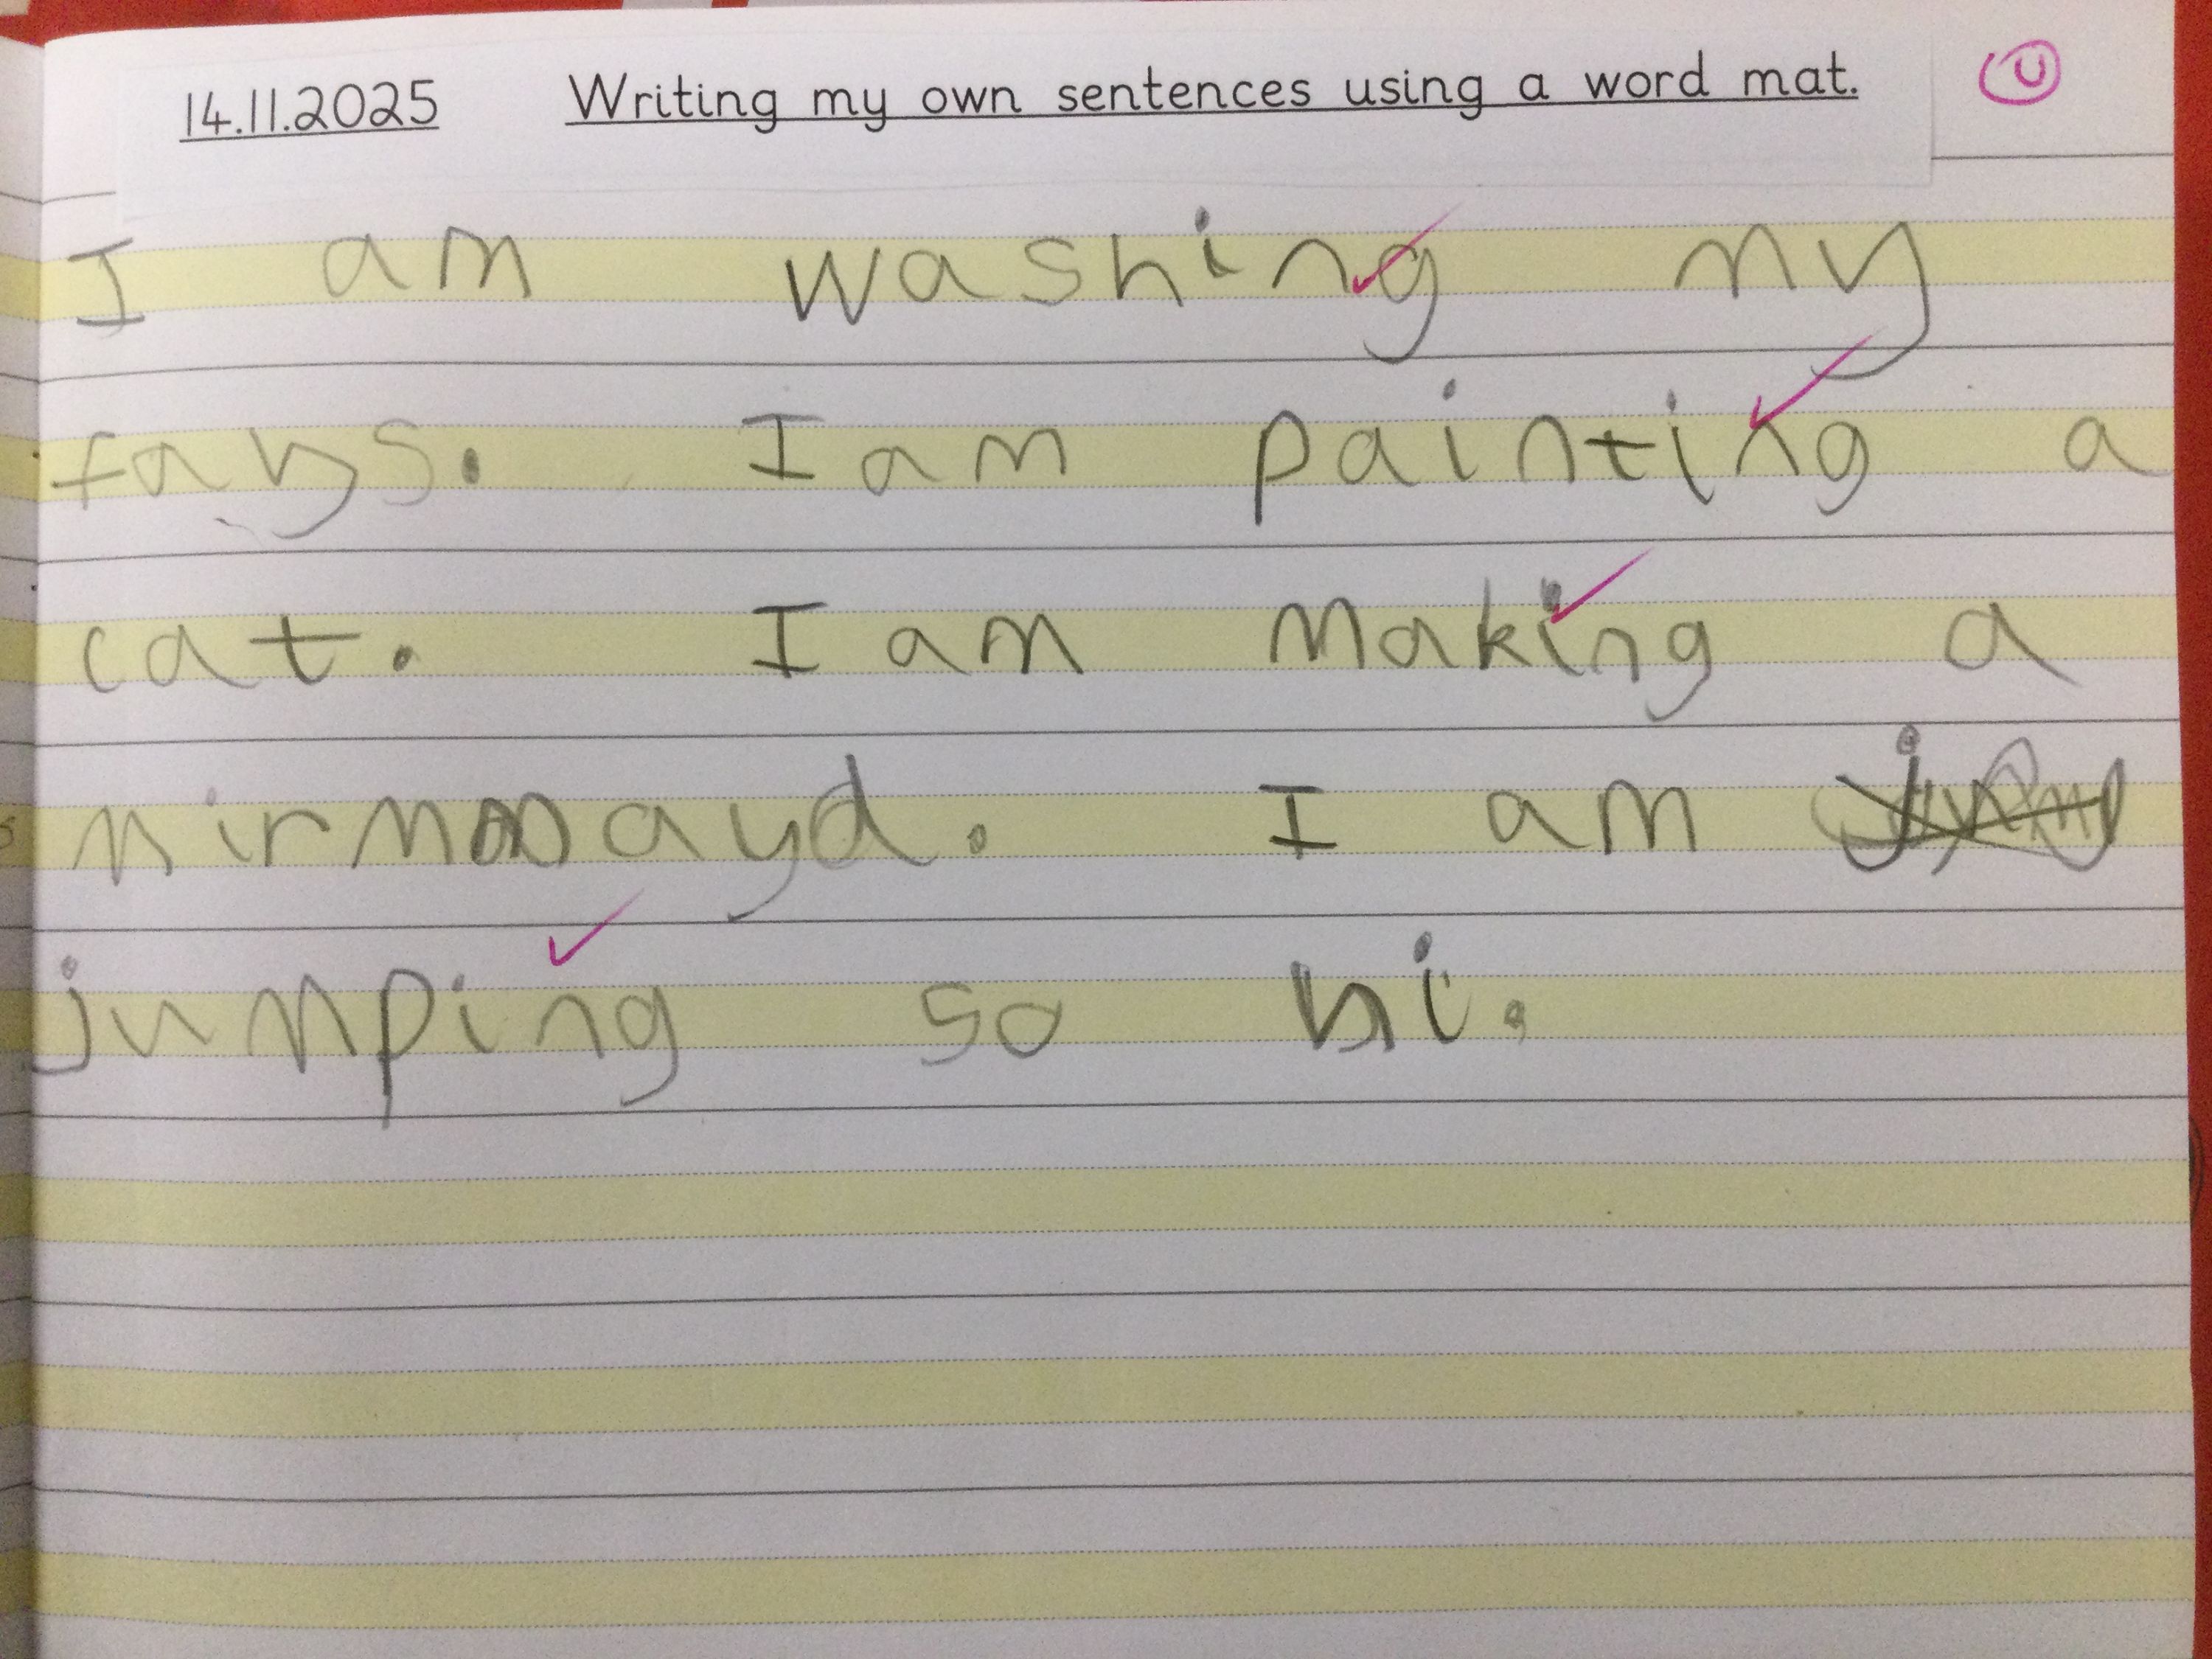 14.11.2025 Writing my own sentences using a word mat. U
I am washing my
fays. I am painting a
cat. I am making a
I am
jumping so hi.